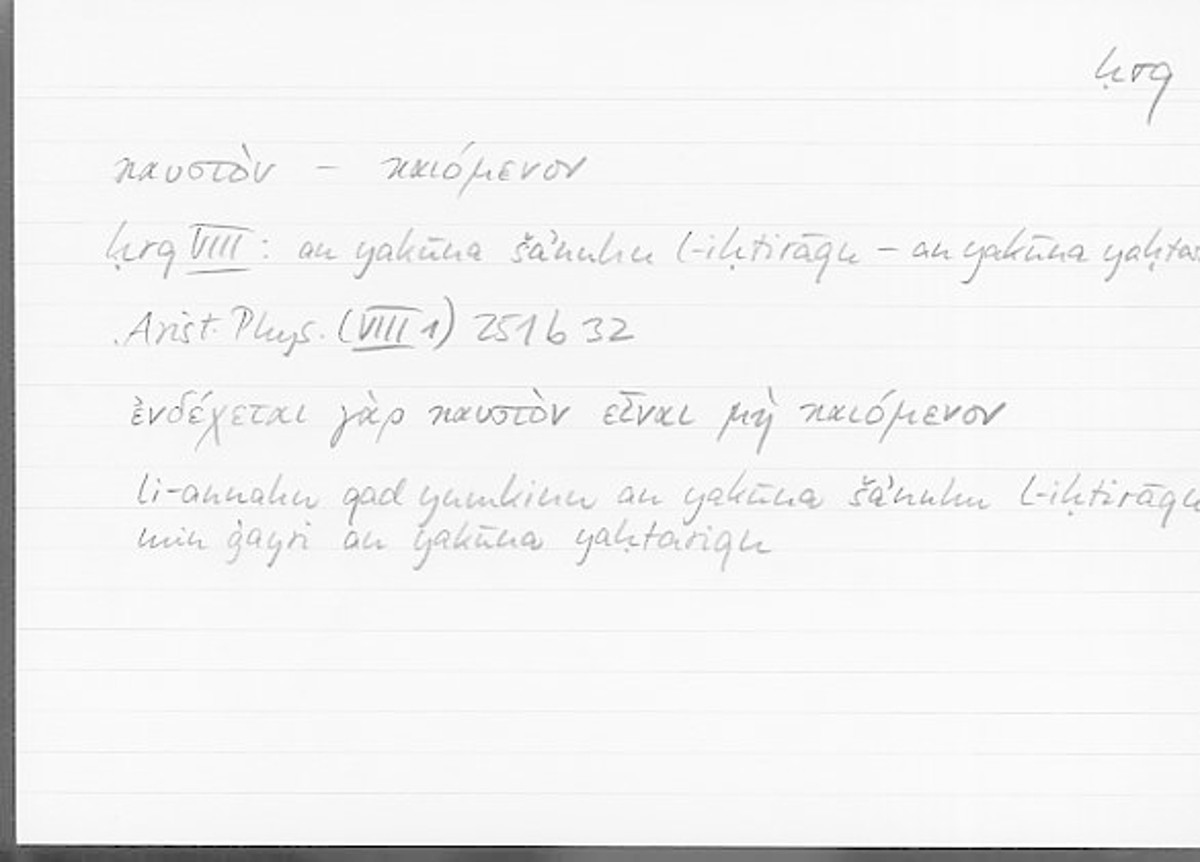 ḥrq
καυστὸν – καιόμενον
ḥrq VIII: an yakūna šaʾnuhu l-iḥtirāqu – an yakūna
Arist. Phys. (VIII 1) 251 b 32
ἐνδέχεται γὰρ καυστὸν εἶναι μὴ καιόμενον
li-annahu qad yumkinu an yakūna šaʾnuhu l-iḥtirāqu
min ġayri an yakūna yaḥtariqu